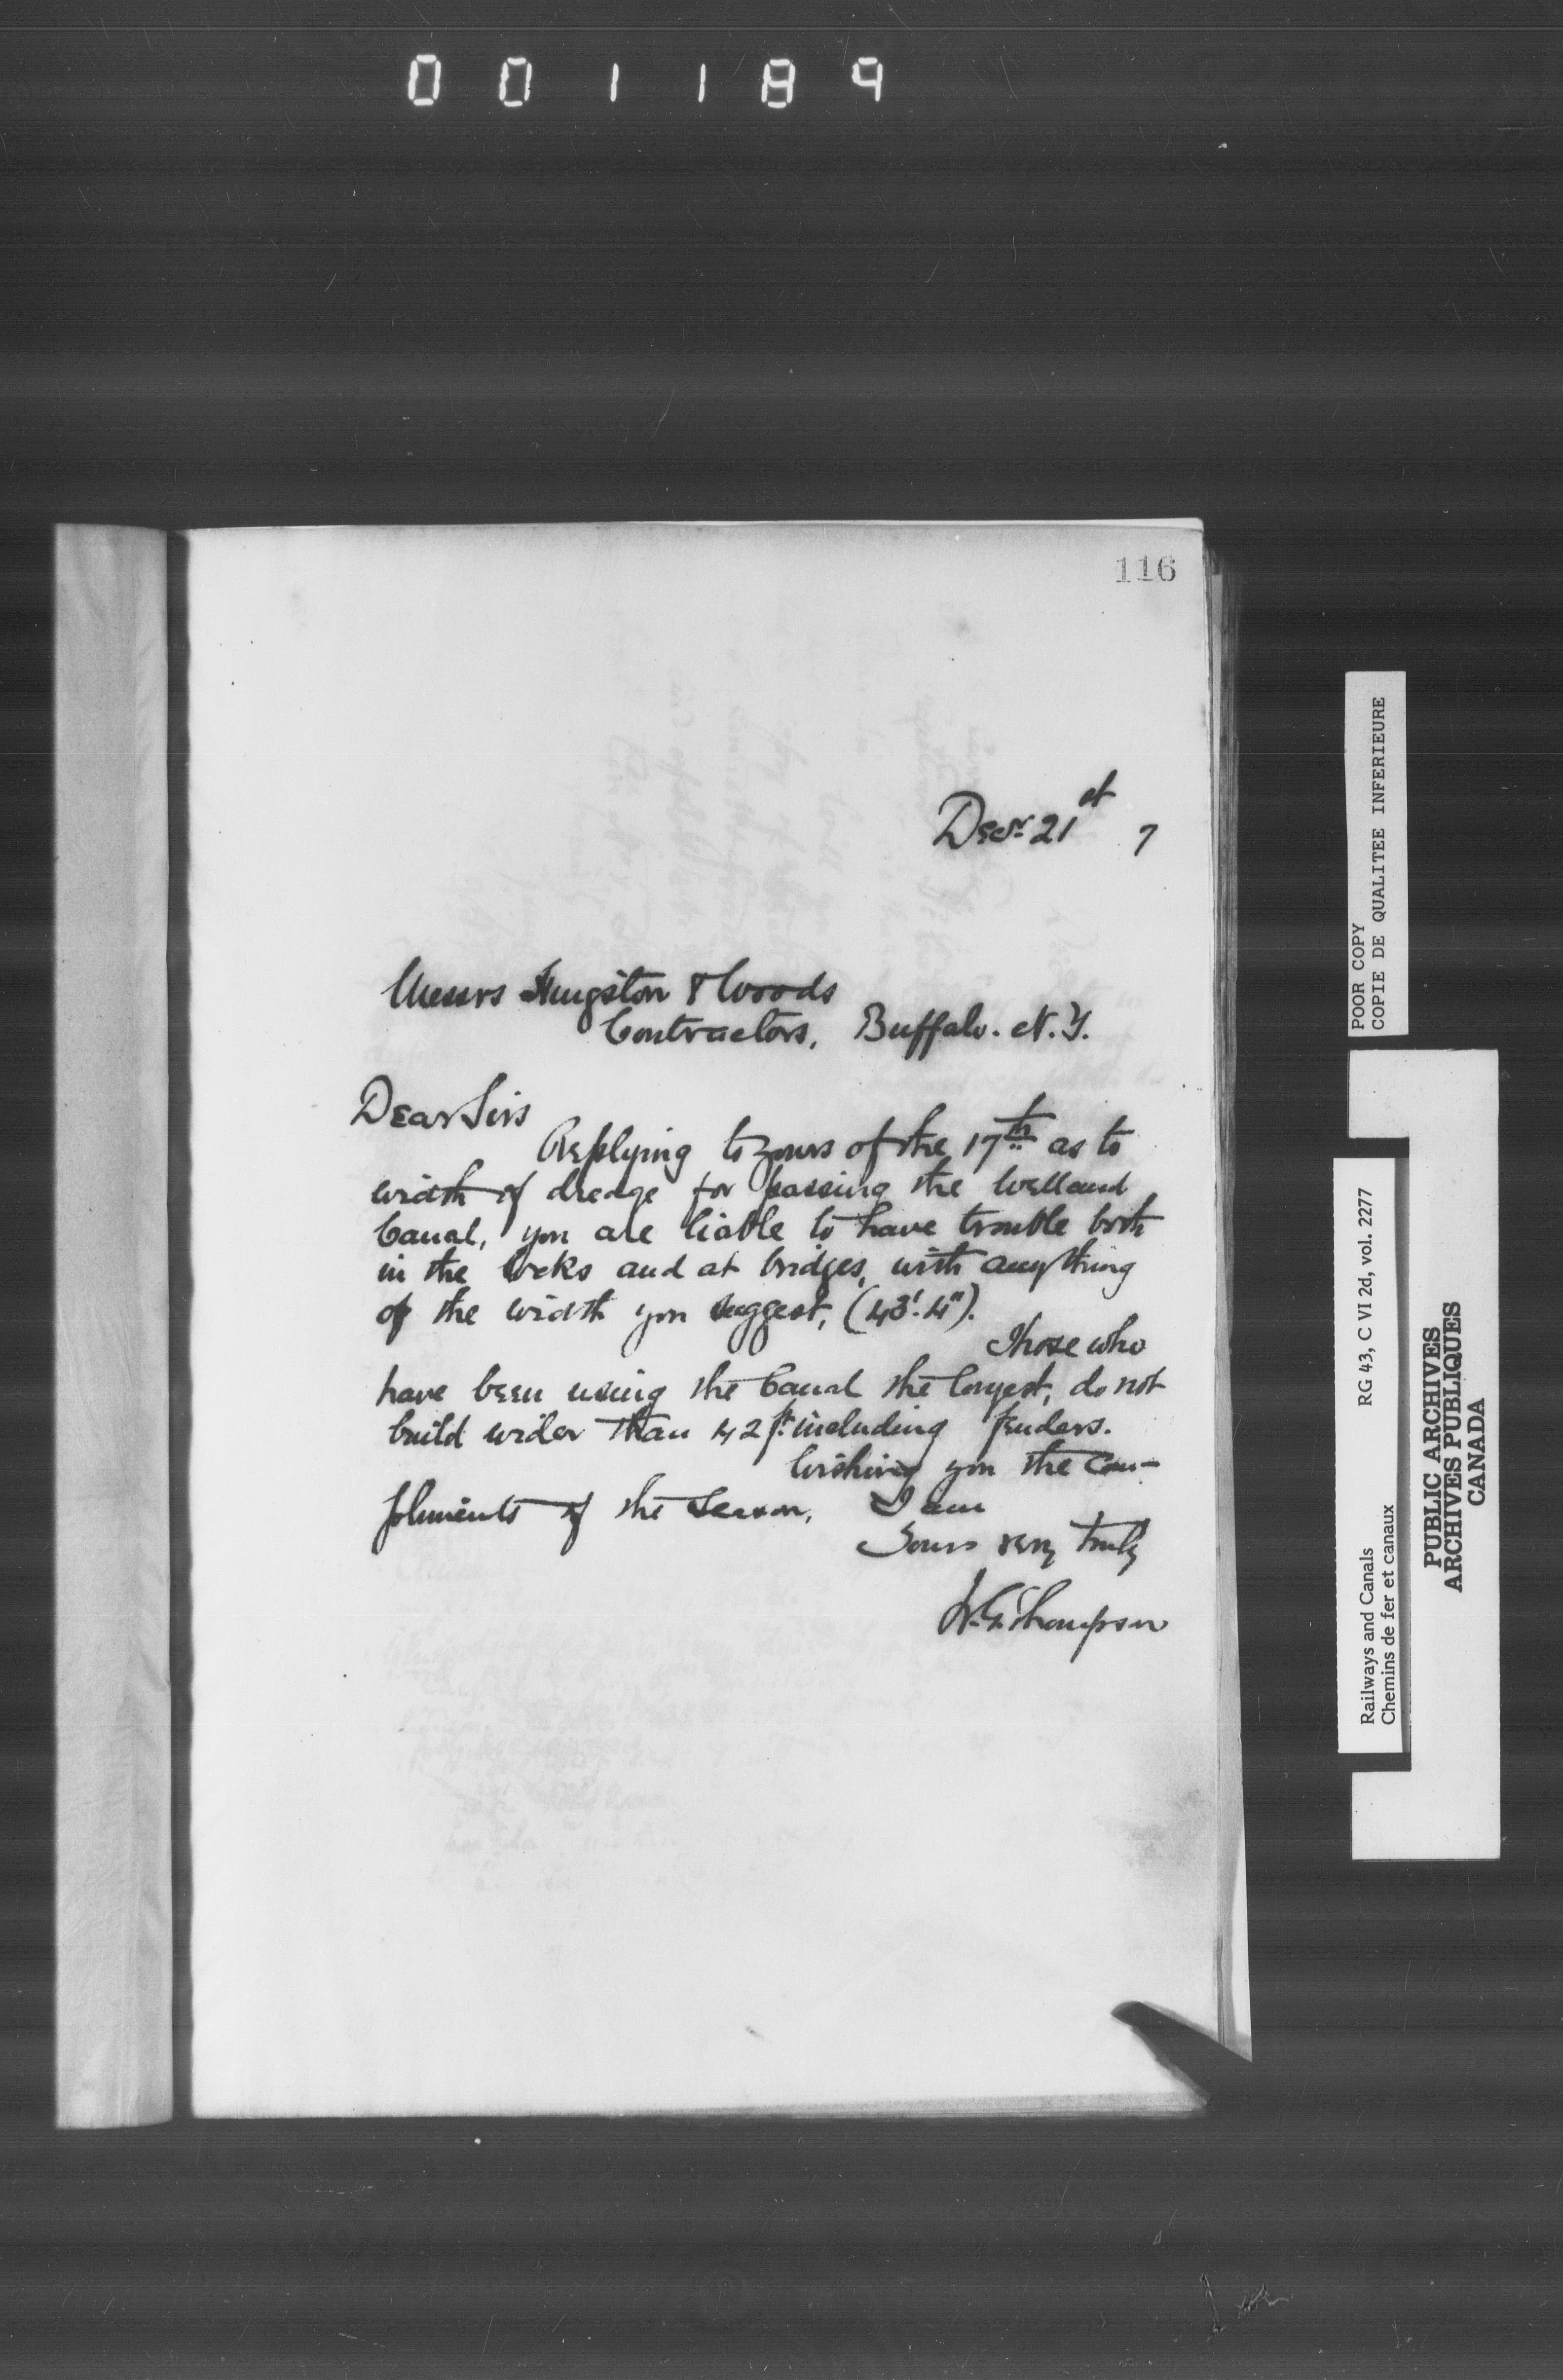 001189
116
Decr. 21st 7
Messrs Hingston & Woods
Contractors, Buffalo. N.Y.
Dear Sirs
Replying to yours of the 17th as to
width of dredge for passing the Welland
Canal, you are liable to have trouble both
in the locks and at bridges, with anything
of the width you suggest, (43'. 4").
Those who
have been using the Canal the longest, do not
build wider than 42 ft. including fenders.
Wishing you the Com-
pliments of the Season, I am
Yours very truly
W.G. Thompson
POOR COPY
COPIE DE QUALITEE INFERIEURE
Railways and Canals RG 43, C VI 2d, vol. 2277
Chemins de fer et canaux
PUBLIC ARCHIVES
ARCHIVES PUBLIQUES
CANADA